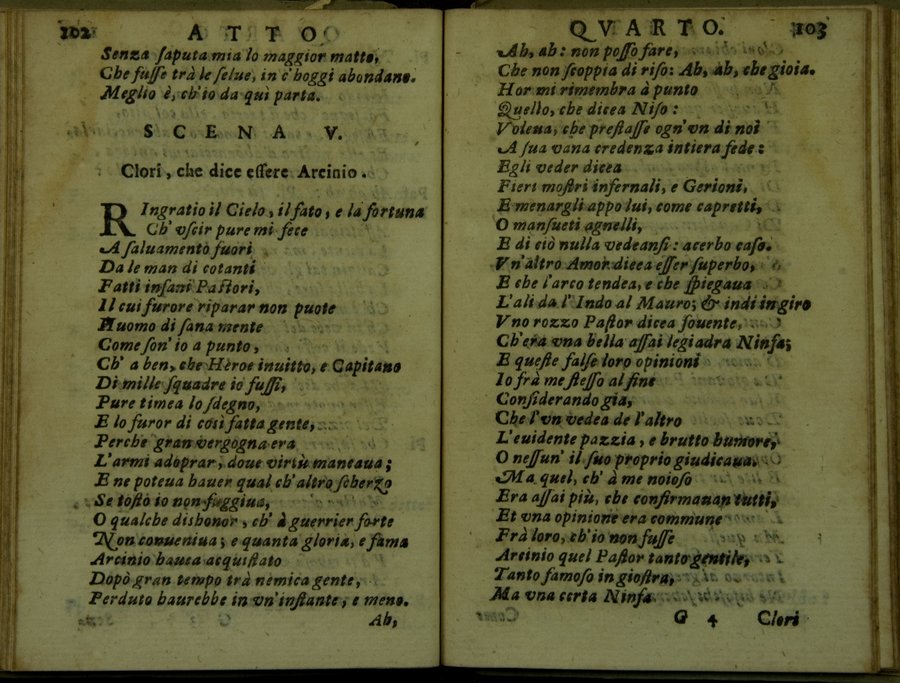 102 ATTO
Senza ſaputa mia lo maggior matto,
Che fuſſe trà le ſelue, in c'hoggi abondano.
Meglio è, ch'io da quì parta.
SCENA V.
Clori, che dice eſſere Arcinio.
RIngratio il Cielo, il fato, e la fortuna
Ch' vſcir pure mi fece
A ſaluamento fuori
Da le man di cotanti
Fatti inſani Paſtori,
Il cui furore riparar non puote
Huomo di ſana mente
Come ſon' io a punto,
Ch' a ben, che Hèroe inuitto, e Capitano
Di mille ſquadre io fuſſi,
Pure timea lo ſdegno,
E lo furor di coſi fatta gente,
Perche gran vergogna era
L'armi adoprar, doue virtù mancaua;
E ne poteua hauer qual ch' altro ſcherzo
Se toſtò io non fuggiua,
O qualche dishonor, ch' à guerrier forte
Non conueniua; e quanta gloria, e fama
Arcinio hauea acquiſtato
Dopò gran tempo trà nemica gente,
Perduto haurebbe in vn'inſtante, e meno.
Ab,
QVARTO. 103
Ah, ah: non poſſo fare,
Che non ſcoppia di riſo: Ah, ah, che gioia.
Hor mi rimembra à punto
Quello, che dicea Niſo:
Voleua, che preſtaſſe ogn'vn di noi
A ſua vana credenza intiera fede:
Egli veder dicea
Fieri moſtri infernali, e Gerioni,
E menargli appo lui, come capretti,
O manſueti agnelli,
E di ciò nulla vedeanſi: acerbo caſo.
Vn'altro Amor dicea eſſer ſuperbo,
E che l'arco tendea, e che ſpiegaua
L'ali da l' Indo al Mauro; & indi in giro
Vno rozzo Paſtor dicea ſouente,
Ch'era vna bella aſſai legiadra Ninfa;
E queſte falſe loro opinioni
Io frà me ſteſſo al fine
Conſiderando gia,
Che l'vn vedea de l'altro
L'euidente pazzia, e brutto humore,
O neſſun' il ſuo proprio giudicaua.
Ma quel, ch' à me noioſo
Era aſſai più, che confirmauan tutti,
Et vna opinione era commune
Frà loro, ch'io non fuſſe
Arcinio quel Paſtor tanto gentile,
Tanto famoſo in gioſtra,
Ma vna certa Ninfa
G 4 Clori